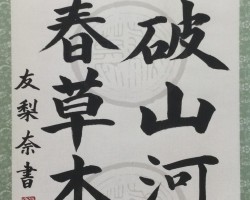 破山河
春草木
友梨奈書